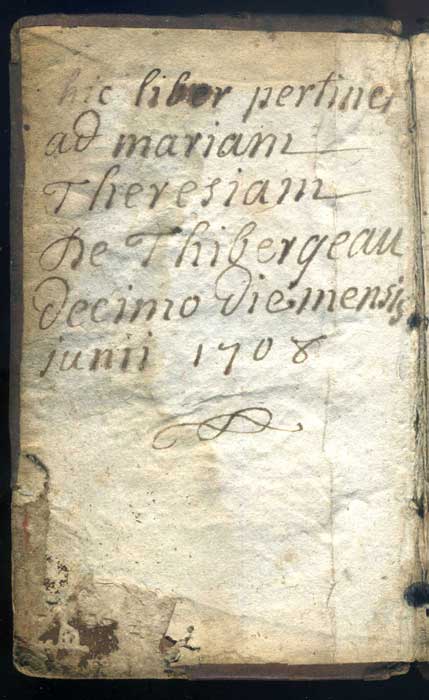 hic liber pertinet
ad mariam
Theresiam
De Thibergeau
decimo die mensis
junii 1708